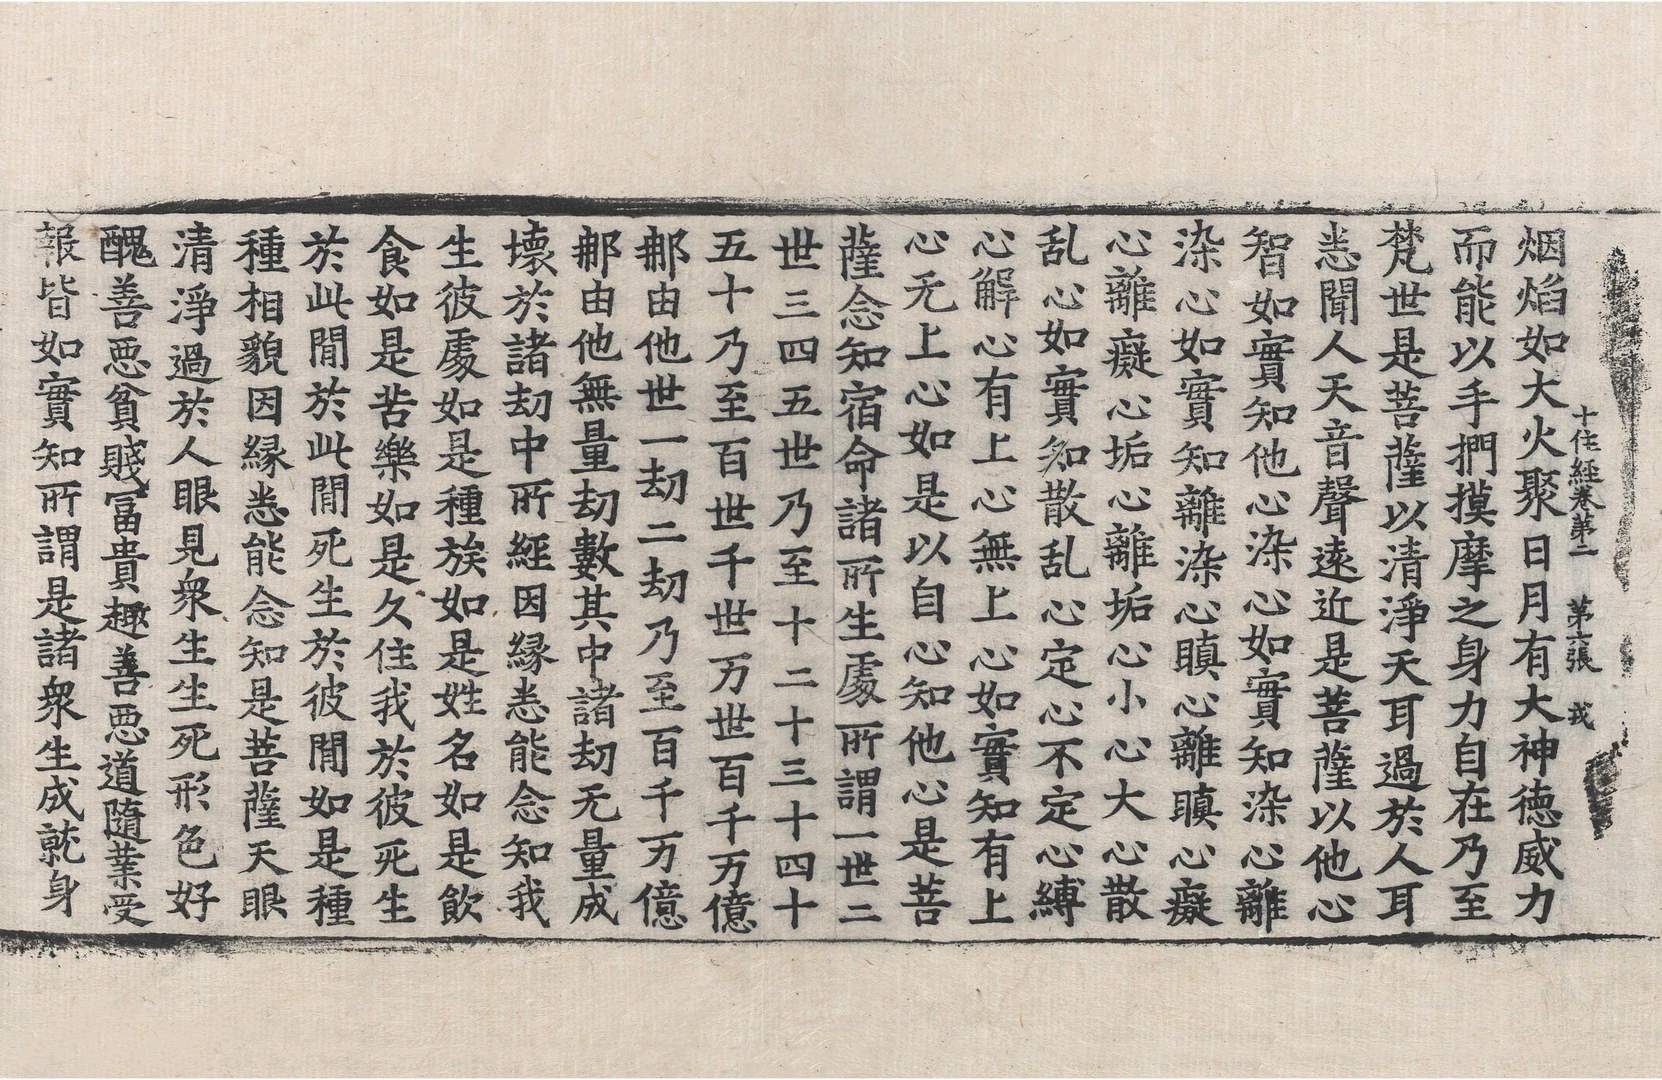 十住經卷第二 第六張 戎
烟焰如大火聚日月有大神德威力
而能以手捫摸摩之身力自在乃至
梵世是菩薩以清淨天耳過於人耳
悉聞人天音聲遠近是菩薩以他心
智如實知他心染心如實知染心離
染心如實知離染心瞋心離瞋心癡
心離癡心垢心離垢心小心大心散
乱心如實知散乱心定心不定心縛
心解心有上心無上心如實知有上
心无上心如是以自心知他心是菩
薩念知宿命諸所生處所謂一世二
世三四五世乃至十二十三十四十
五十乃至百世千世万世百千万億
那由他世一劫二劫乃至百千万億
那由他無量劫數其中諸劫无量成
壞於諸劫中所經因緣悉能念知我
生彼處如是種族如是姓名如是飲
食如是苦樂如是久住我於彼死生
於此閒於此閒死生於彼閒如是種
種相貌因緣悉能念知是菩薩天眼
清淨過於人眼見衆生生死形色好
醜善惡貧賤冨貴趣善惡道隨業受
報皆如實知所謂是諸衆生成就身